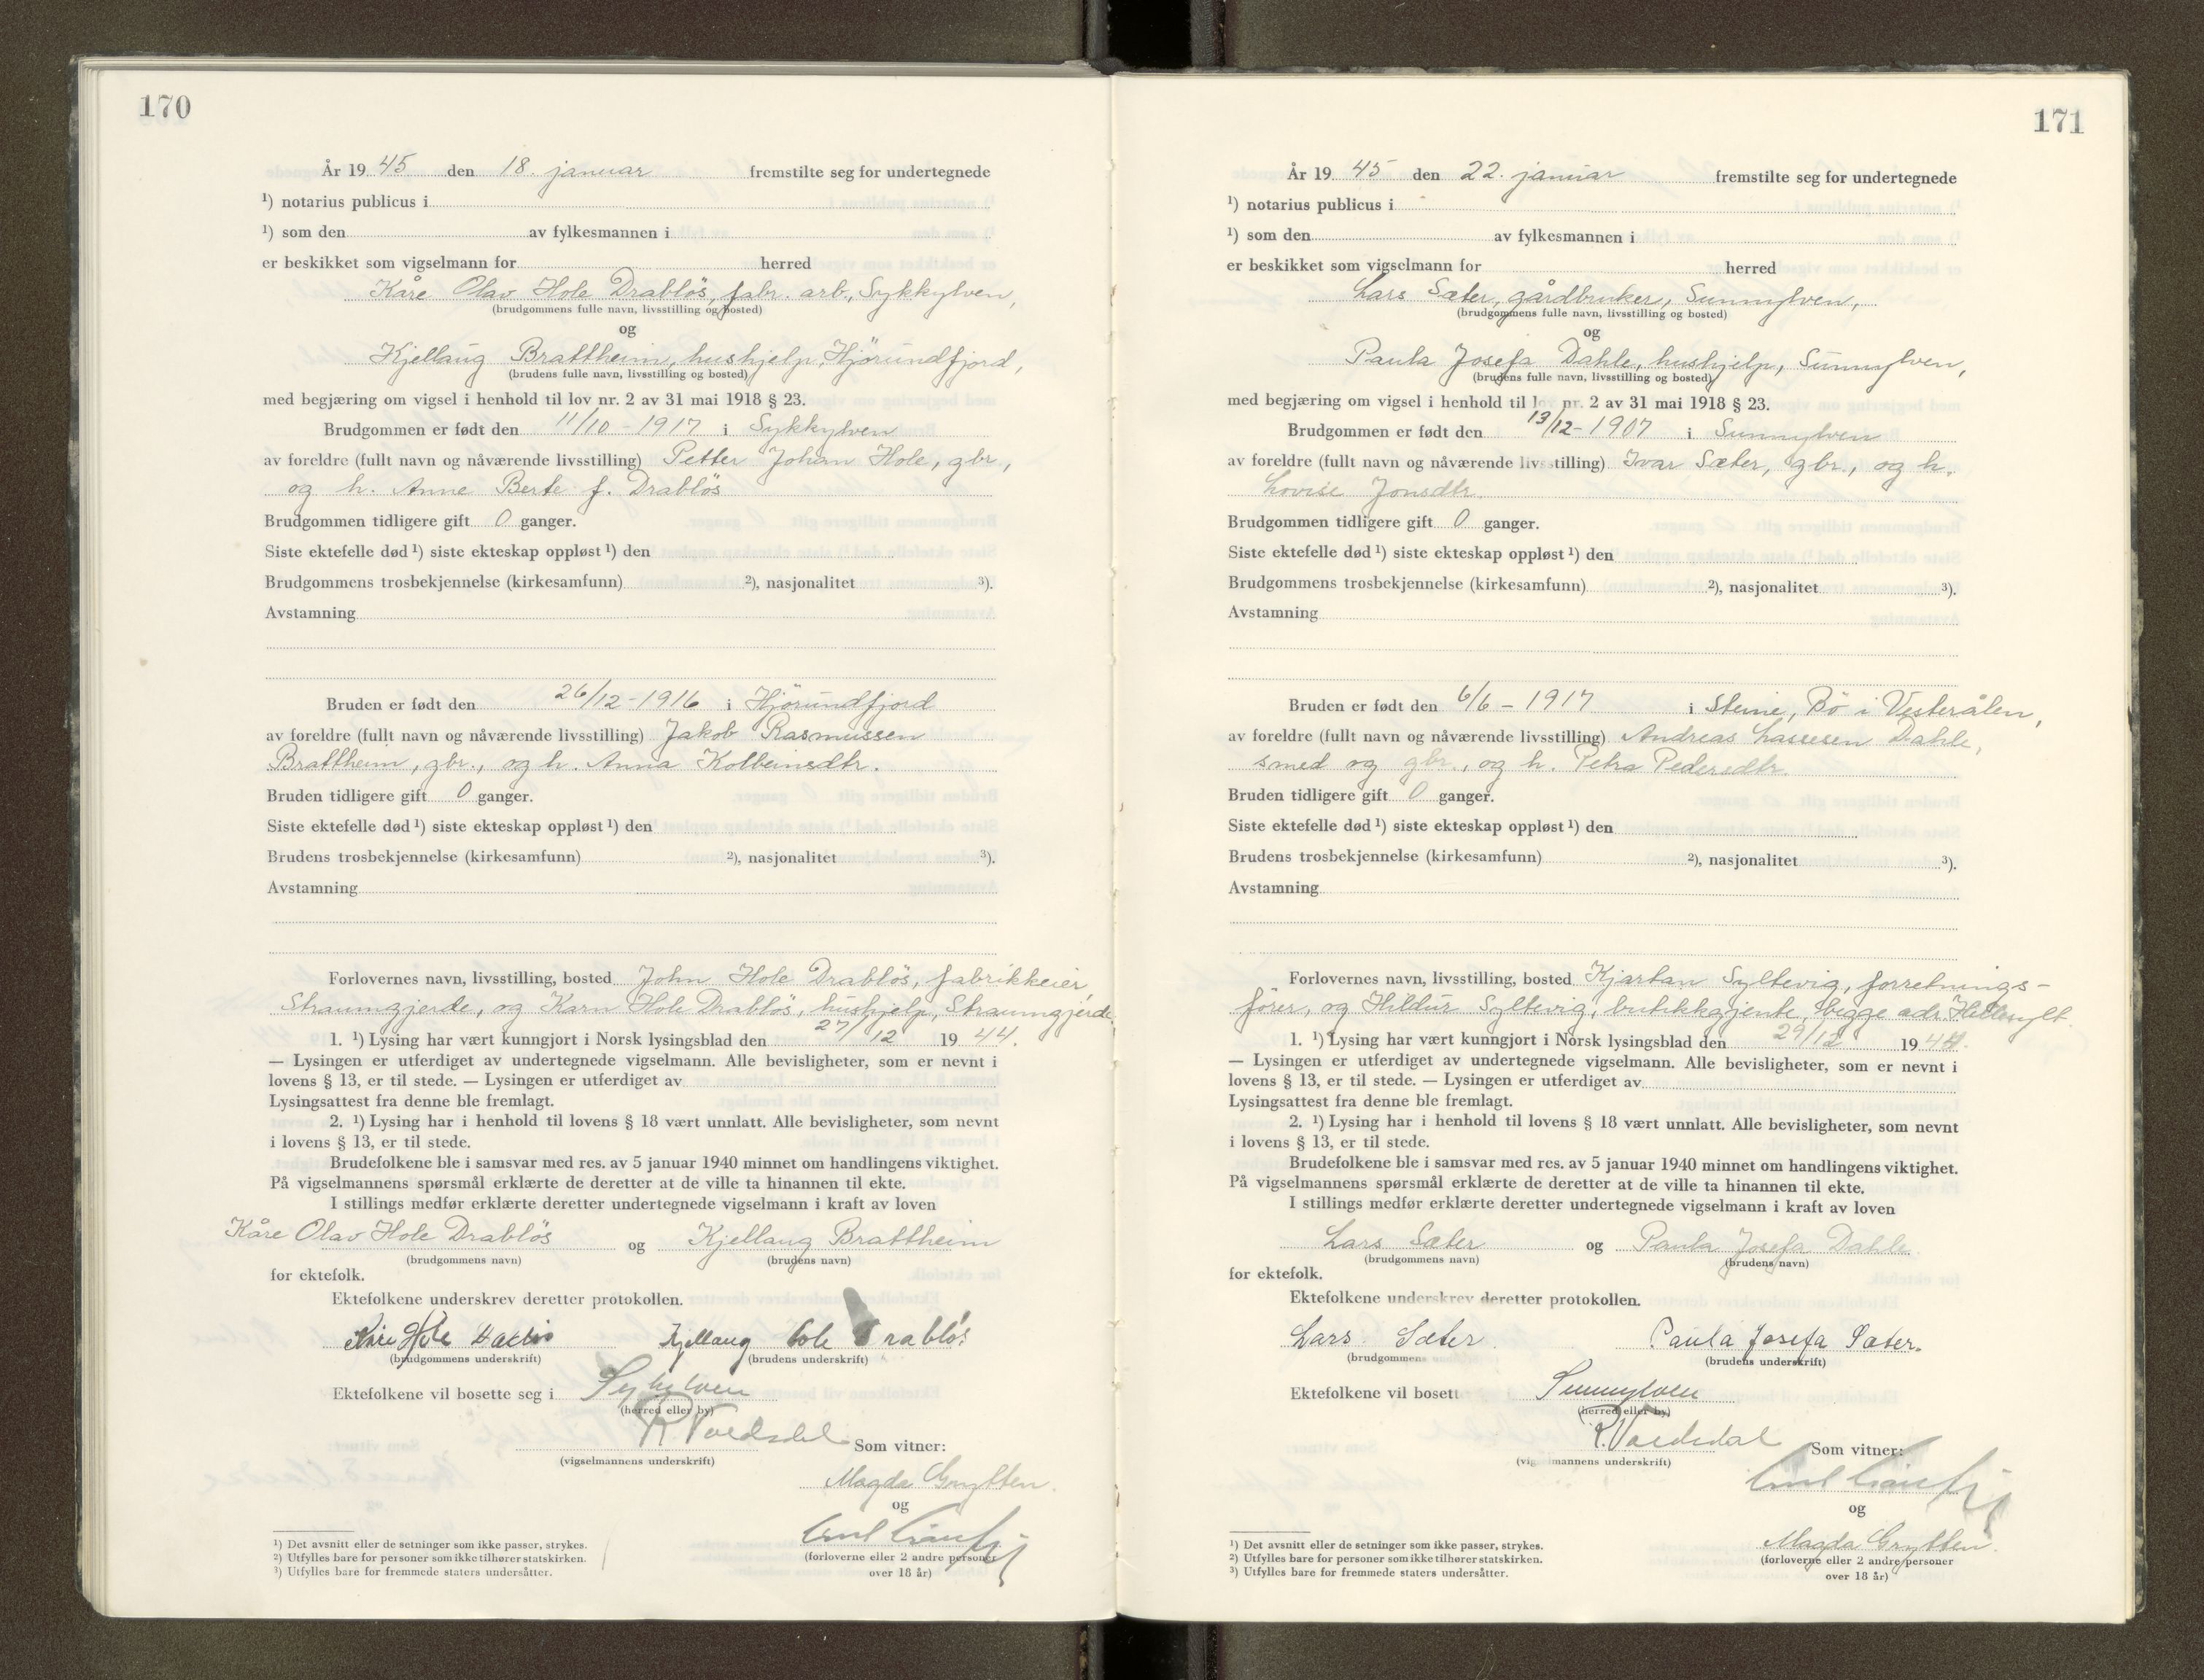 170
År 19 45 den 18. januar fremstilte seg for undertegnede
¹) notarius publicus i
¹) som den av fylkesmannen i
er beskikket som vigselmann for herred
Kåre Olav Hole Drabløs, fabr. arb., Sykkylven,
(brudgommens fulle navn, livsstilling og bosted)
og
Kjellaug Brattheim, hushjelp, Hjørundfjord,
(brudens fulle navn, livsstilling og bosted)
med begjæring om vigsel i henhold til lov nr. 2 av 31 mai 1918 § 23.
Brudgommen er født den 11/10-1917 i Sykkylven
av foreldre (fullt navn og nåværende livsstilling) Petter Johan Hole, gbr,
og h. Anne Berte f. Drabløs
Brudgommen tidligere gift 0 ganger.
Siste ektefelle død ¹) siste ekteskap oppløst ¹) den
Brudgommens trosbekjennelse (kirkesamfunn) ²), nasjonalitet ³).
Avstamning
Bruden er født den 26/12-1916 i Hjørundfjord
av foreldre (fullt navn og nåværende livsstilling) Jakob Rasmussen
Brattheim, gbr., og h. Anna Kolbeinsdtr.
Bruden tidligere gift 0 ganger.
Siste ektefelle død ¹) siste ekteskap oppløst ¹) den
Brudens trosbekjennelse (kirkesamfunn) ²), nasjonalitet ³).
Avstamning
Forlovernes navn, livsstilling, bosted John Hole Drabløs, fabrikkeier,
Straumgjerde, og Karn Hole Drabløs, hushjelp, Straumgjerde.
1. ¹) Lysing har vært kunngjort i Norsk lysingsblad den 27/12 19 44.
— Lysingen er utferdiget av undertegnede vigselmann. Alle bevisligheter, som er nevnt i
lovens § 13, er til stede. — Lysingen er utferdiget av
Lysingsattest fra denne ble fremlagt.
2. ¹) Lysing har i henhold til lovens § 18 vært unnlatt. Alle bevisligheter, som nevnt
i lovens § 13, er til stede.
Brudefolkene ble i samsvar med res. av 5 januar 1940 minnet om handlingens viktighet.
På vigselmannens spørsmål erklærte de deretter at de ville ta hinannen til ekte.
I stillings medfør erklærte deretter undertegnede vigselmann i kraft av loven
Kåre Olav Hole Drabløs og Kjellaug Brattheim
(brudgommens navn) (brudens navn)
for ektefolk.
Ektefolkene underskrev deretter protokollen.
Kåre Hole Kjellaug Hole Drabløs
(brudgommens underskrift) (brudens underskrift)
Ektefolkene vil bosette seg i Sykylven
(herred eller by)
R Voldsdal Som vitner:
(vigselmannens underskrift)
Magda Grytten.
og
(forloverne eller 2 andre personer
over 18 år)
¹) Det avsnitt eller de setninger som ikke passer, strykes.
²) Utfylles bare for personer som ikke tilhører statskirken.
³) Utfylles bare for fremmede staters undersåtter.
171
År 19 45 den 22. januar fremstilte seg for undertegnede
¹) notarius publicus i
¹) som den av fylkesmannen i
er beskikket som vigselmann for herred
Lars Sæter, gårdbruker, Sunnylven,
(brudgommens fulle navn, livsstilling og bosted)
og
Paula Josefa Dahle, hushjelp, Sunnylven,
(brudens fulle navn, livsstilling og bosted)
med begjæring om vigsel i henhold til lov nr. 2 av 31 mai 1918 § 23.
Brudgommen er født den 13/12-1907 i Sunnylven
av foreldre (fullt navn og nåværende livsstilling) Ivar Sæter, gbr., og h.
Lovise Jonsdtr.
Brudgommen tidligere gift 0 ganger.
Siste ektefelle død ¹) siste ekteskap oppløst ¹) den
Brudgommens trosbekjennelse (kirkesamfunn) ²), nasjonalitet ³).
Avstamning
Bruden er født den 6/6-1917 i Steine, Bø i Vesterålen,
av foreldre (fullt navn og nåværende livsstilling) Andreas Lassesen Dahle,
smed og gbr., og h. Petra Pedersdtr.
Bruden tidligere gift 0 ganger.
Siste ektefelle død ¹) siste ekteskap oppløst ¹) den
Brudens trosbekjennelse (kirkesamfunn) ²), nasjonalitet ³).
Avstamning
Forlovernes navn, livsstilling, bosted Kjartan Syltevig, forretnings-
fører, og Hildur Syltevig, butikkgjente, begge adr. Hellesylt.
1. ¹) Lysing har vært kunngjort i Norsk lysingsblad den 29/12 19 44.
— Lysingen er utferdiget av undertegnede vigselmann. Alle bevisligheter, som er nevnt i
lovens § 13, er til stede. — Lysingen er utferdiget av
Lysingsattest fra denne ble fremlagt.
2. ¹) Lysing har i henhold til lovens § 18 vært unnlatt. Alle bevisligheter, som nevnt
i lovens § 13, er til stede.
Brudefolkene ble i samsvar med res. av 5 januar 1940 minnet om handlingens viktighet.
På vigselmannens spørsmål erklærte de deretter at de ville ta hinannen til ekte.
I stillings medfør erklærte deretter undertegnede vigselmann i kraft av loven
Lars Sæter og Paula Josefa Dahle
(brudgommens navn) (brudens navn)
for ektefolk.
Ektefolkene underskrev deretter protokollen.
Lars Sæter. Paula Josefa Sæter.
(brudgommens (brudens underskrift)
Ektefolkene vil bosett Sunnylven
(herred eller by)
R. Voldsdal Som vitner:
(vigselmannens underskrift)
og
Magda Grytten.
(forloverne eller 2 andre personer
over 18 år)
¹) Det avsnitt eller de setninger som ikke passer, strykes.
²) Utfylles bare for personer som ikke tilhører statskirken.
³) Utfylles bare for fremmede staters undersåtter.